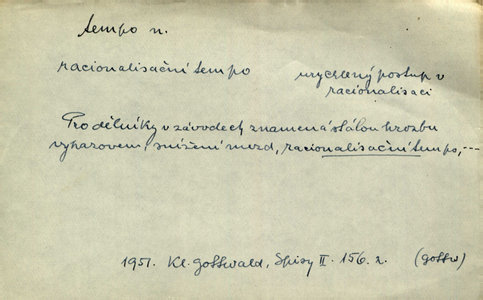 tempo n.
racionalisační tempo urychlený postup v
racionalisaci
Pro dělníky v závodech znamená stálou hrozbu
vyhazovem, snížení mezd, racionalisační tempo,---
1951. Kl. Gottwald, Spisy II. 156. r. (Gottw)